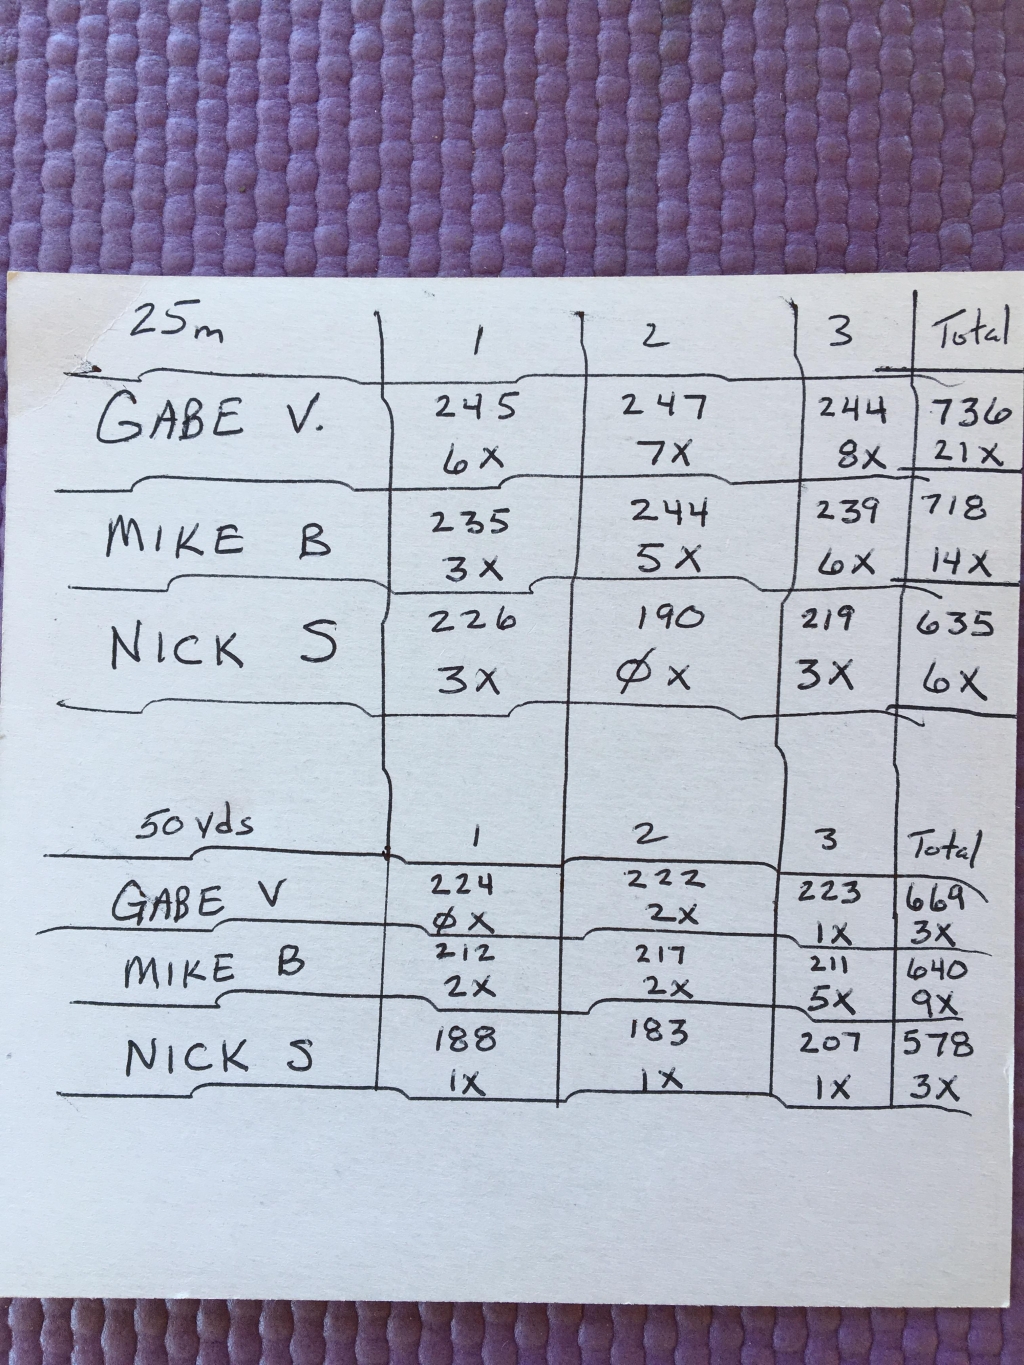 25m 1 2 3 Total
GABE V. 245 247 244 736
6X 7X 8X 21X
MIKE B 235 244 239 718
3X 5X 6X 14X
NICK S 226 190 219 635
3X ØX 3X 6X
50 yds 1 2 3 Total
GABE V 224 222 223 669
ØX 2X 1X 3X
MIKE B 212 217 211 640
2X 2X 5X 9X
NICK S 188 183 207 578
1X 1X 1X 3X